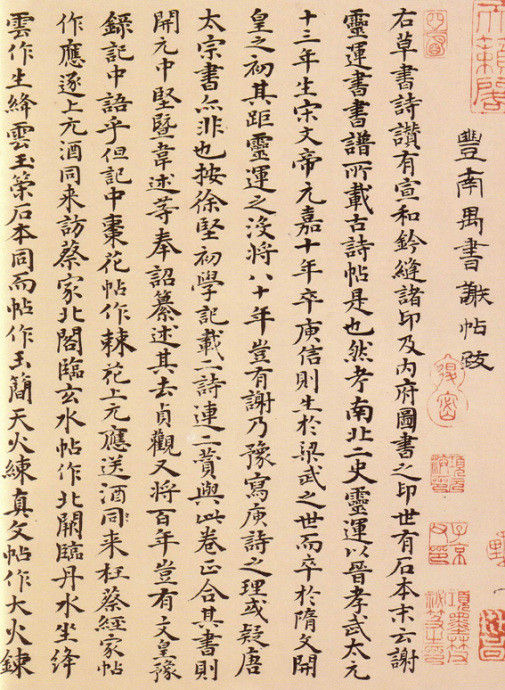 天籟閣
豐南禺書謝帖攷
右草書詩讚有宣和鈐縫諸印及內府圖書之印世有石本末云謝
靈運書書譜所載古詩帖是也然考南北二史靈運以晉孝武太元
十三年生宋文帝元嘉十年卒庾信則生於梁武之世而卒於隋文開
皇之初其距靈運之沒將八十年豈有謝乃豫寫庾詩之理或疑唐
太宗書亦非也按徐堅初學記載二詩連二贊與此卷正合其書則
開元中堅暨韋述等奉詔纂述其去貞觀又將百年豈有文皇豫
錄記中語乎但記中棗花帖作棘花上元應送酒同来枉蔡經家帖
作應逐上元酒同来訪蔡家北閣臨玄水帖作北闕臨丹水坐絳
雲作生絳雲玉策石本同而帖作玉簡天火練真文帖作大火鍊
子京父印